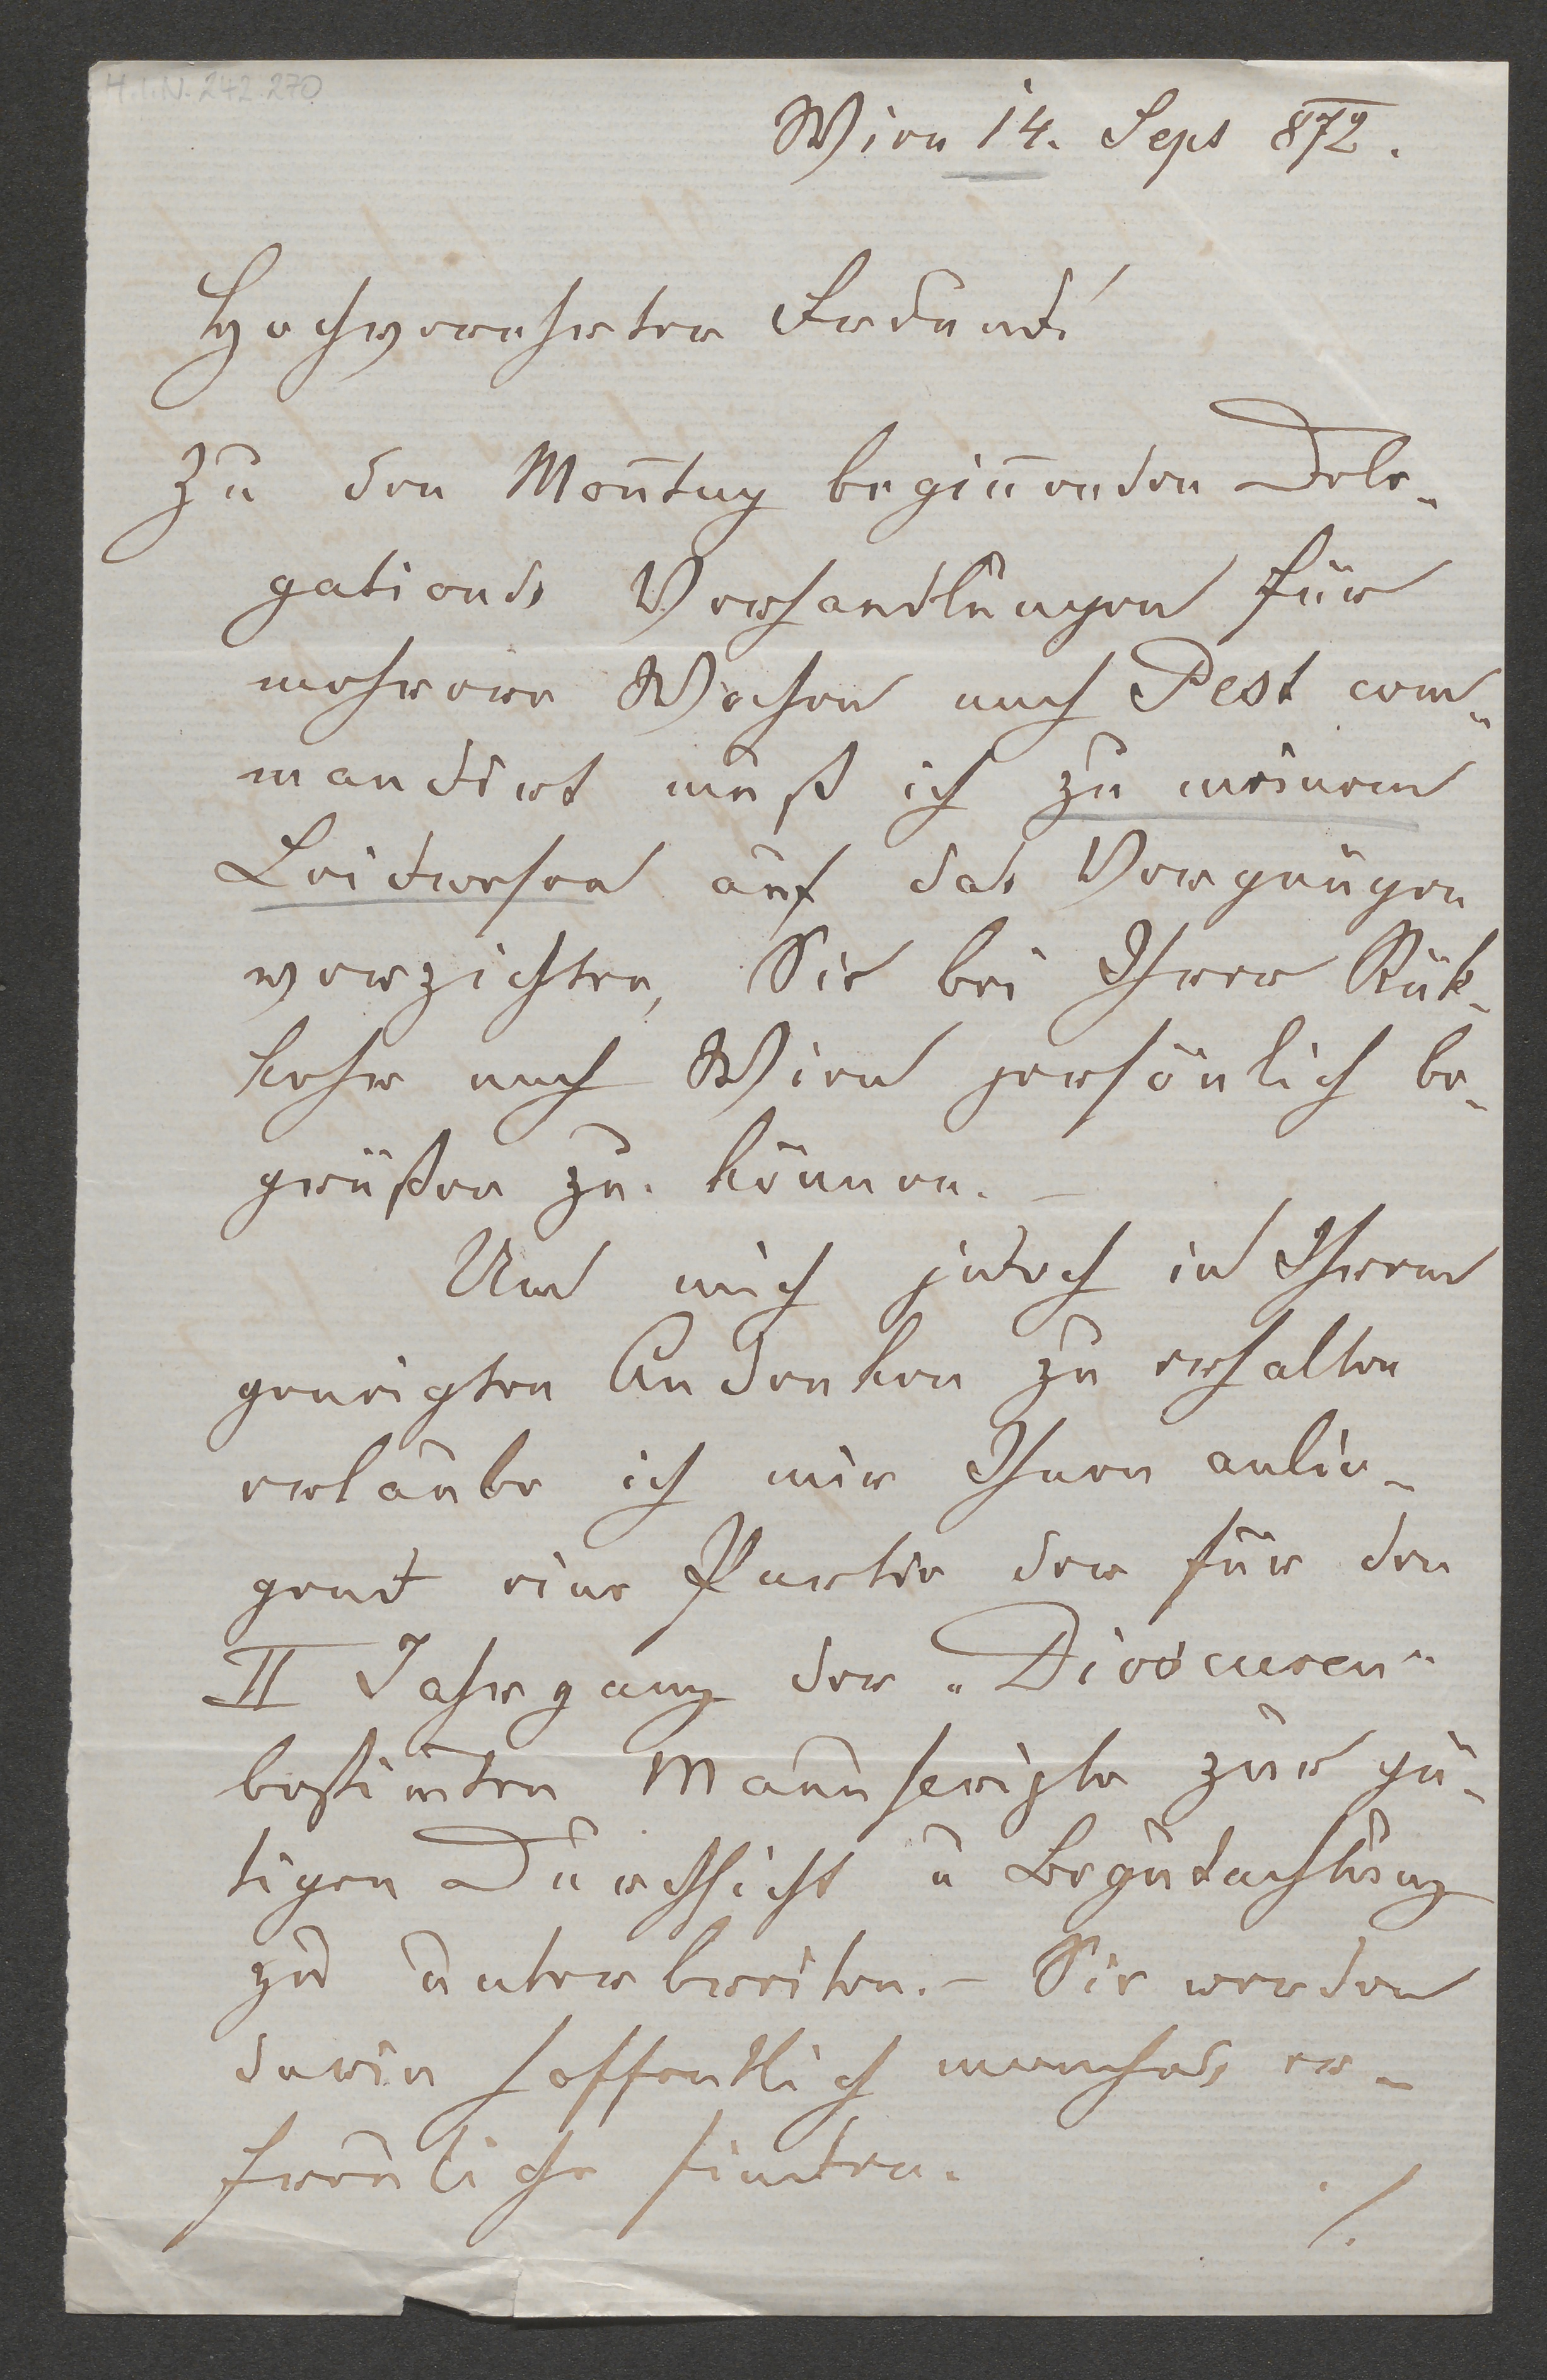 H.I.N. 242.270
Wien 14. Sept 872.
Hochverehrter Freund!
Zu den Montag beginnenden Dele-
gations Verhandlungen für
mehrere Wochen nach Pest com-
mandirt muß ich zu meinem
Leidwesen auf das Vergnügen
verzichten, Sie bei Ihrer Rük-
kehr nach Wien persönlich be-
grüßen zu können. –
Um mich jedoch in Ihrem
geneigten Andenken zu erhalten
erlaube ich mir Ihnen anlie-
gend eine Partie der für den
II Jahrgang der „Dioscuren"
bestimten Manuscripte zur gü-
tigen Durchsicht u Begutachtung
zu unterbreiten. – Sie werden
darin hoffentlich manches er-
freuliche finden.
./.